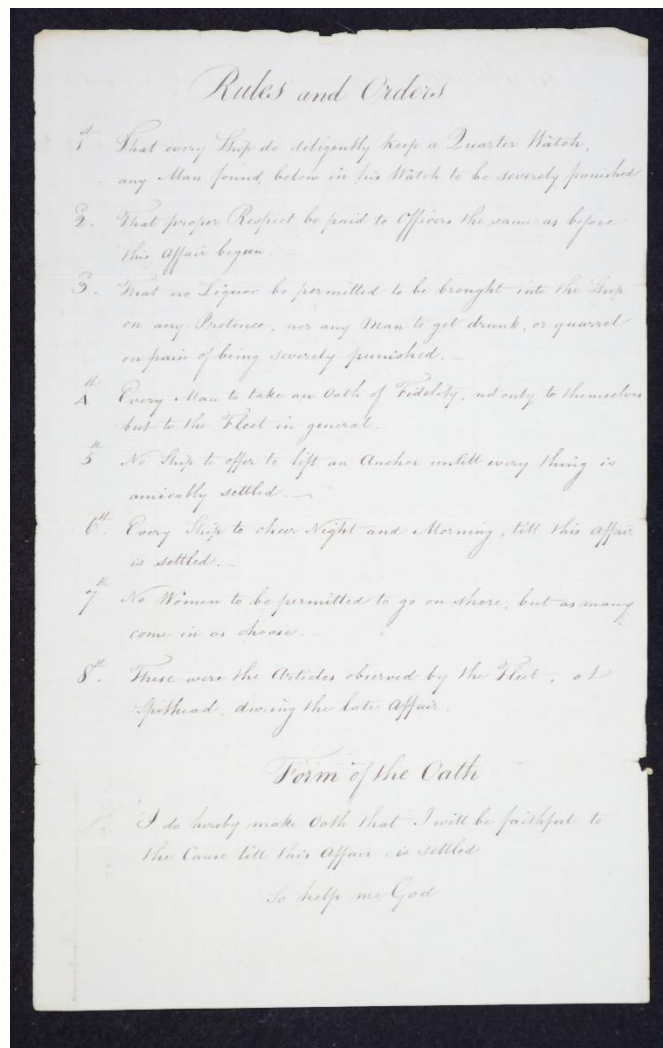 Rules and Orders
1st That every Ship do deligently keep a Quarter Watch,
any Man found below in his Watch to be severely punished
2. That proper Respect be paid to Officers the same as before
this Affair began.
3. That no Liquor be permitted to be brought into the Ship
on any Pretence, nor any Man to get drunk, or quarrel
on pain of being severely punished.
4th Every Man to take an Oath of Fidelity, not only to themselves
but to the Fleet in general.
5th No Ship to offer to lift an Anchor untill every thing is
amicably settled.
6th Every Ship to chear Night and Morning, till this affair
is settled.
7th No Women to be permitted to go on shore, but as many
come in as choose.
8th. These were the Articles observed by the Fleet, at
Spithead, during the late Affair.
Form of the Oath
I do hereby make Oath that I will be faithful to
the Cause till this Affair is settled
So help me God